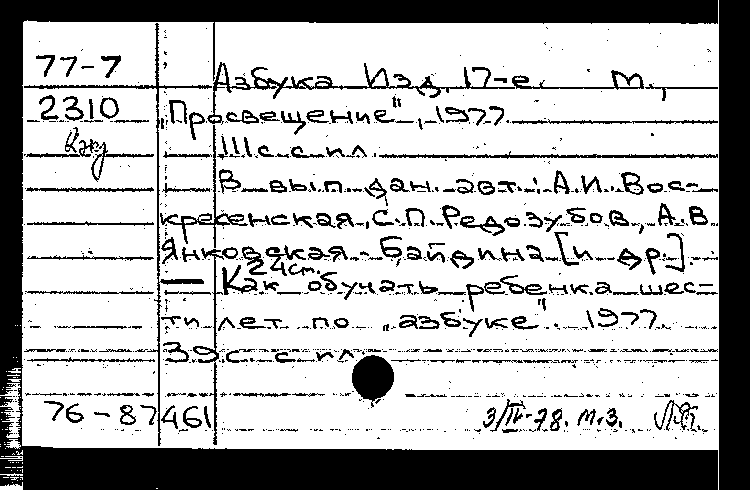 77-7
Азбука. Изд. 17-е. М.,
2310
„Просвещение", 1977.
111 с. с ил.
В вып. дан. авт.: А.И. Вос-
кресенская, С.П. Редозубов, А.В.
Янковская-Байдина [и др].
24 см.
— Как обучать ребенка шес-
ти лет по „азбуке". 1977.
39 с. с ил.
76-87461
3/IV-78. М.З.